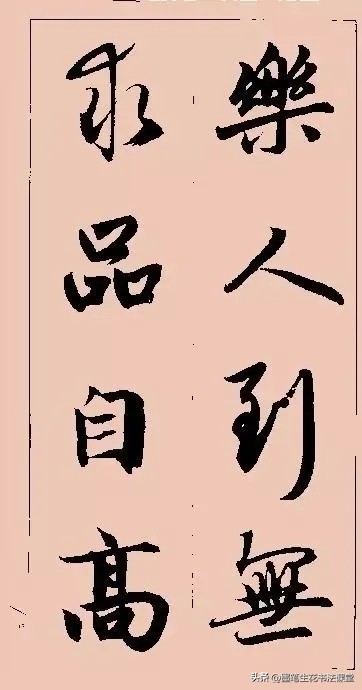 樂人到無
求品自高
头条@墨笔生花书法课堂